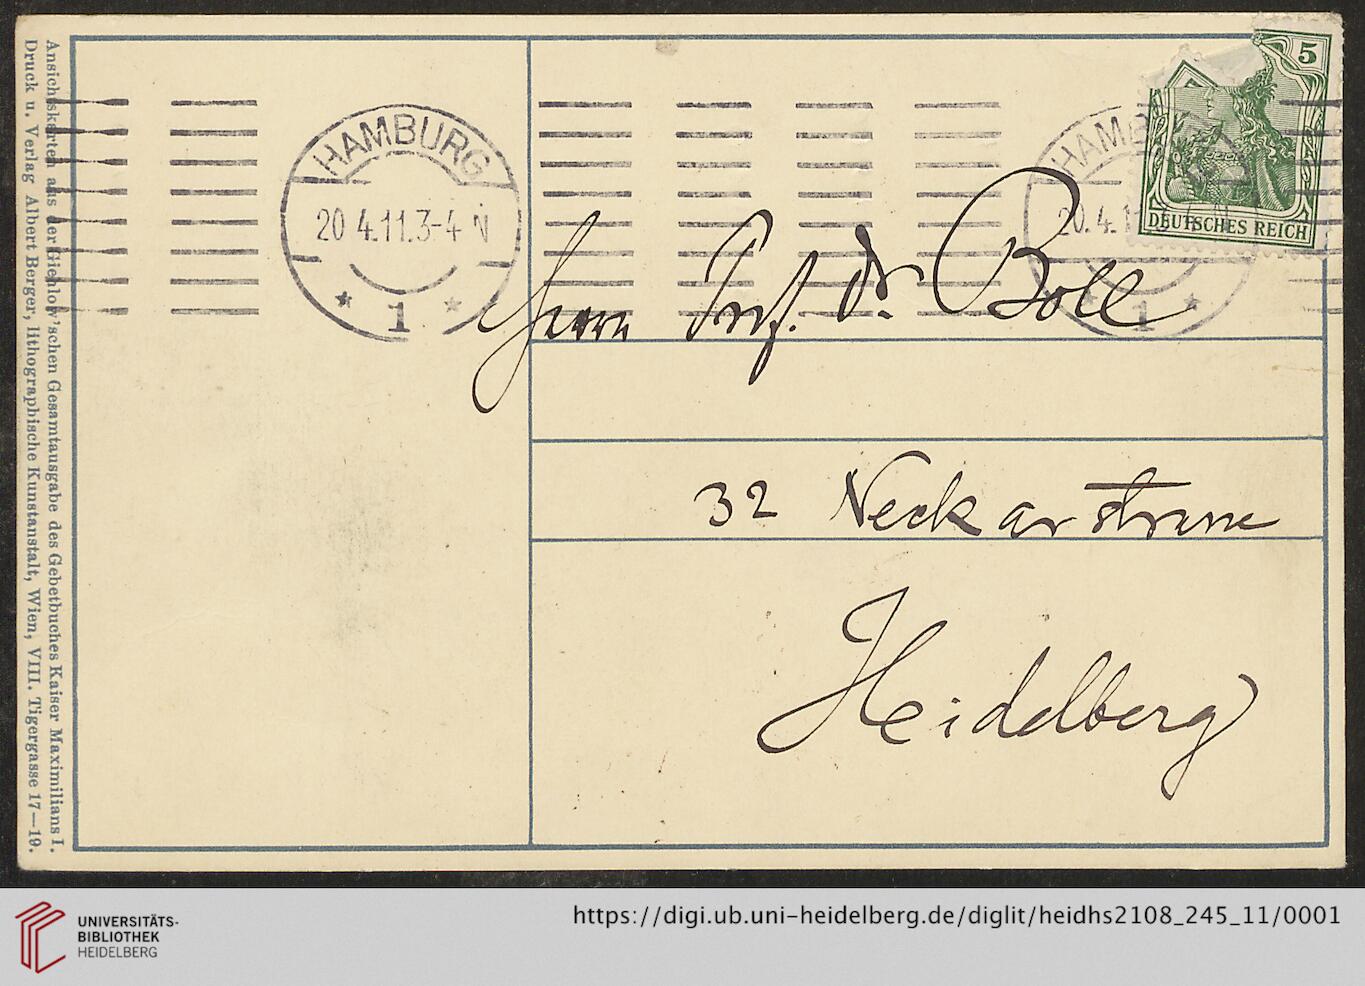 Ansichtskarten aus der Giehlow'schen Gesamtausgabe des Gebetbuches Kaiser Maximilians I.
Druck u. Verlag Albert Berger, lithographische Kunstanstalt, Wien, VIII. Tigergasse 17—19.
HAMBURG
20 4.11.3-4 N
* 1 *
HAMB
20.4.1
1 *
5
DEUTSCHES REICH
Herrn Prof. Dr. Boll
32 Neckarstrasse
Heidelberg
UNIVERSITÄTS-
BIBLIOTHEK
HEIDELBERG
https://digi.ub.uni-heidelberg.de/diglit/heidhs2108_245_11/0001